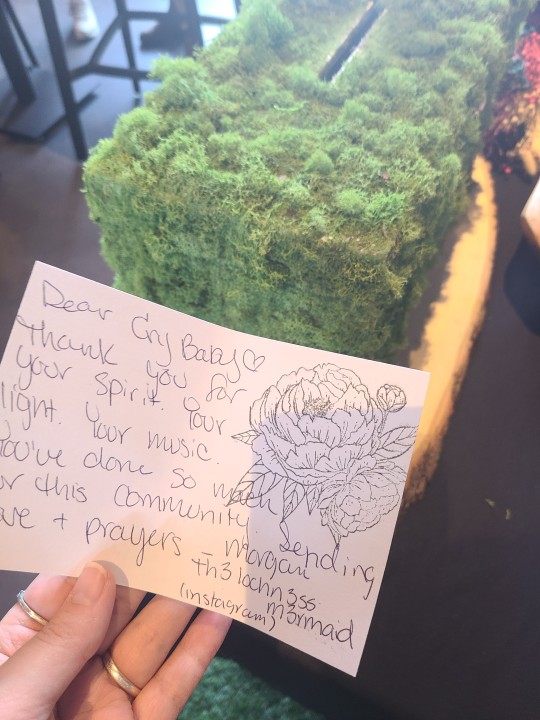 Dear Cry Baby♡
Thank you for
your spirit. Your
light. Your music.
You've done so much
for this community
sending
+ prayers - Morgan
th3lochn3ss
m3rmaid
(instagram)